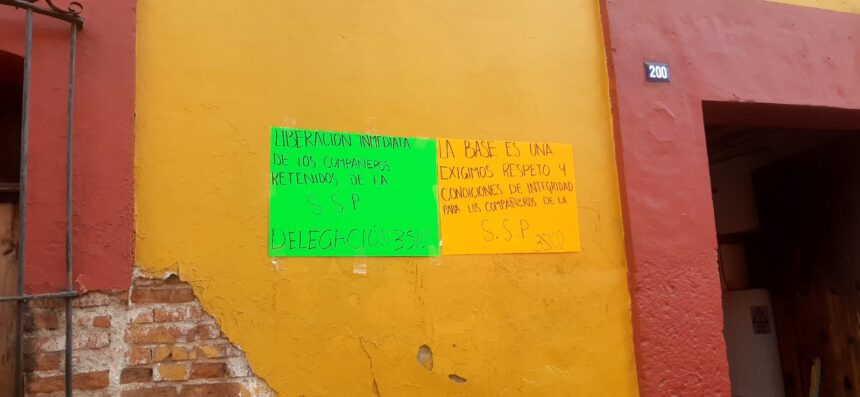 LIBERACION INMEDIATA
DE LOS COMPAÑEROS
RETENIDOS DE LA
S.S.P
DELEGACIÓN 35/02
LA BASE ES UNA
EXIGIMOS RESPETO Y
CONDICIONES DE INTEGRIDAD
PARA LOS COMPAÑEROS DE LA
S.S.P
35/02
200